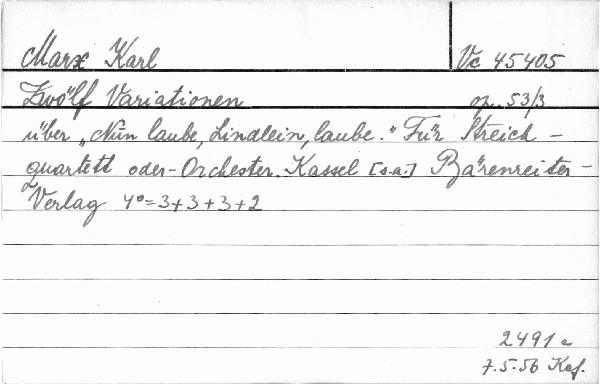 Marx Karl Vc 45405
Zwölf Variationen op. 53/3
über „Nun laube, Lindlein, laube." Für Streich-
quartett oder-Orchester. Kassel [s.a.] Bärenreiter-
Verlag 4°=3+3+3+2
2491 a
7.5.56 Kef.